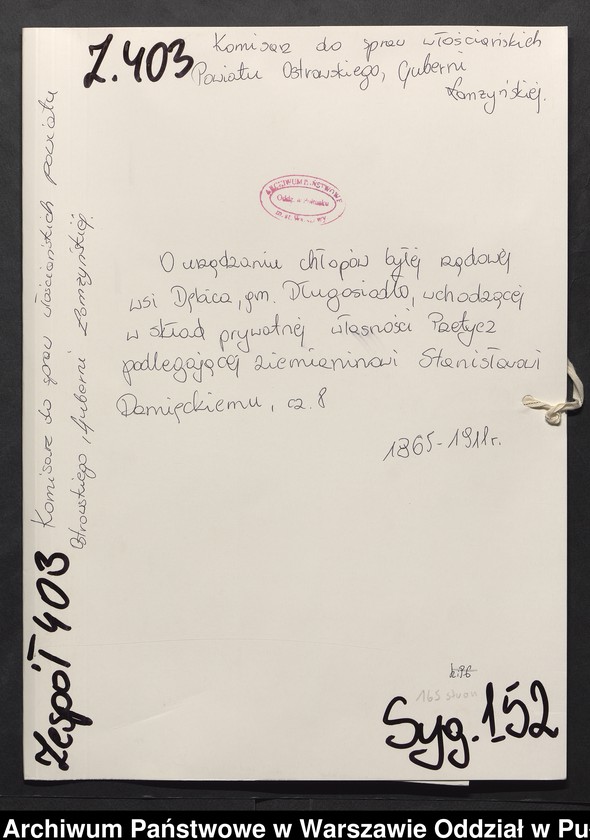 Z.403
Komisarz do spraw włościańskich
Powiatu Ostrowskiego, Guberni
Łomżyńskiej.
Komisarz do spraw włościańskich powiatu
Ostrowskiego, Guberni Łomżyńskiej.
Zespół 403
ARCHIWUM PAŃSTWOWE
Oddz. w Pułtusku
m.st. Warszawy
O urządzaniu chłopów byłej rządowej
wsi Dębica, gm. Długosiodło, wchodzącej
w skład prywatnej własności Rzetycz
podlegającej ziemianinowi Stanisławowi
Damięckiemu, cz. 8
1865-1911r.
165 stron
Syg. 152
Archiwum Państwowe w Warszawie Oddział w Pu